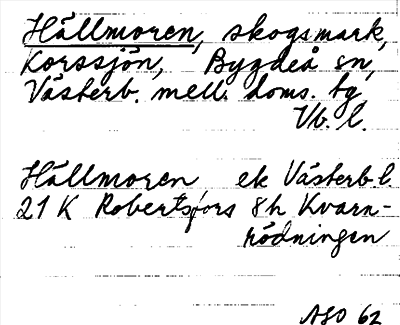 Hällmoren, skogsmark,
Korssjön, Bygdeå sn,
Västerb. mell. doms. tg
Vb. l.
Hällmoren ek Västerb.l.
21 K Robertsfors 8h Kvarn-
rödningen
ASO 62